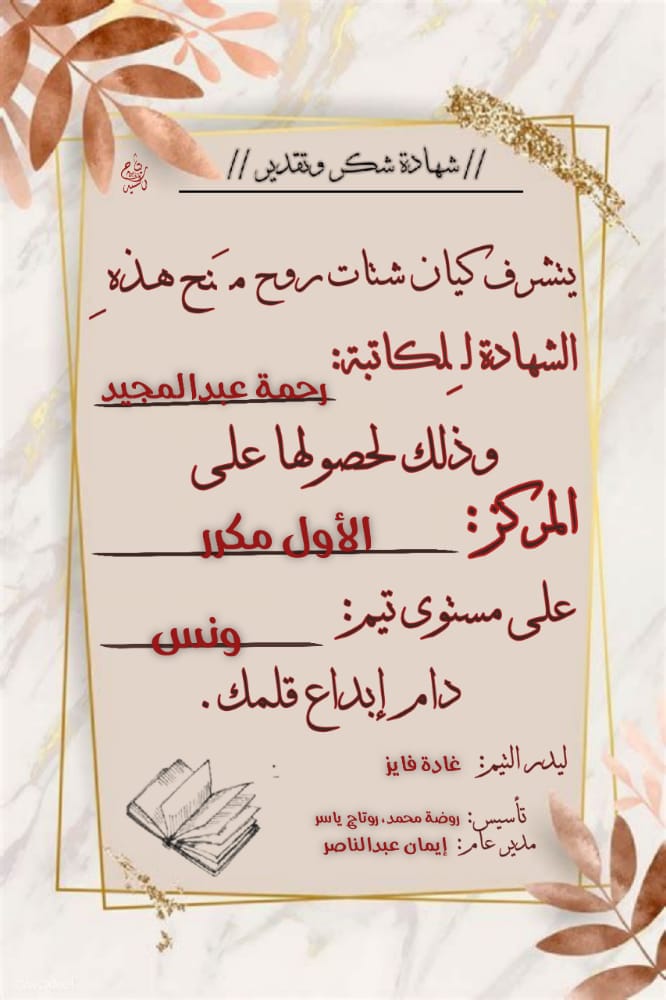 // شهادة شكر وتقدير //
يتشرف كيان شتات روح مَنح هذهِ
الشهادة لـِلكاتبة: رحمة عبدالمجيد
وذلك لحصولها على
المركز: الأول مكرر
على مستوى تيم: ونس
دام إبداع قلمك.
ليدر التيم: غادة فايز
تأسيس: روضة محمد، روتاج ياسر
مدير عام: إيمان عبدالناصر